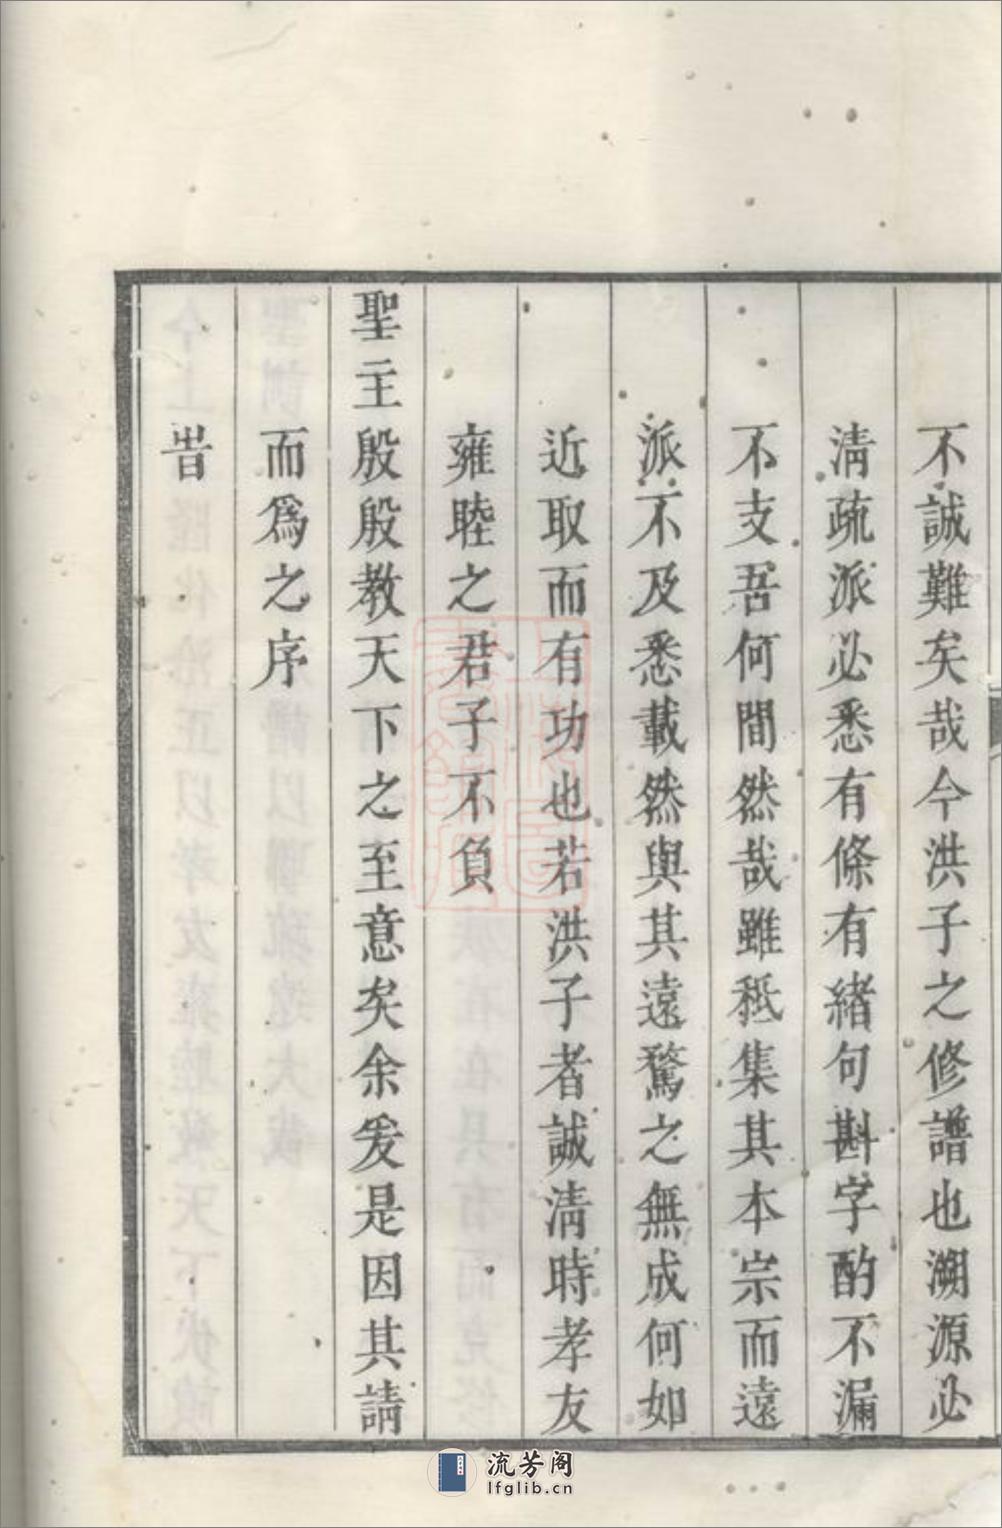 不誠難矣哉今洪子之修譜也溯源必
清疏派必悉有條有緒句斟字酌不漏
不支吾何間然哉雖秪集其本宗而遠
派不及悉載然與其遠騖之無成何如
近取而有功也若洪子者誠清時孝友
雍睦之君子不負
聖主殷殷教天下之至意矣余爰是因其請
而為之序
旹
流芳阁
lfglib.cn